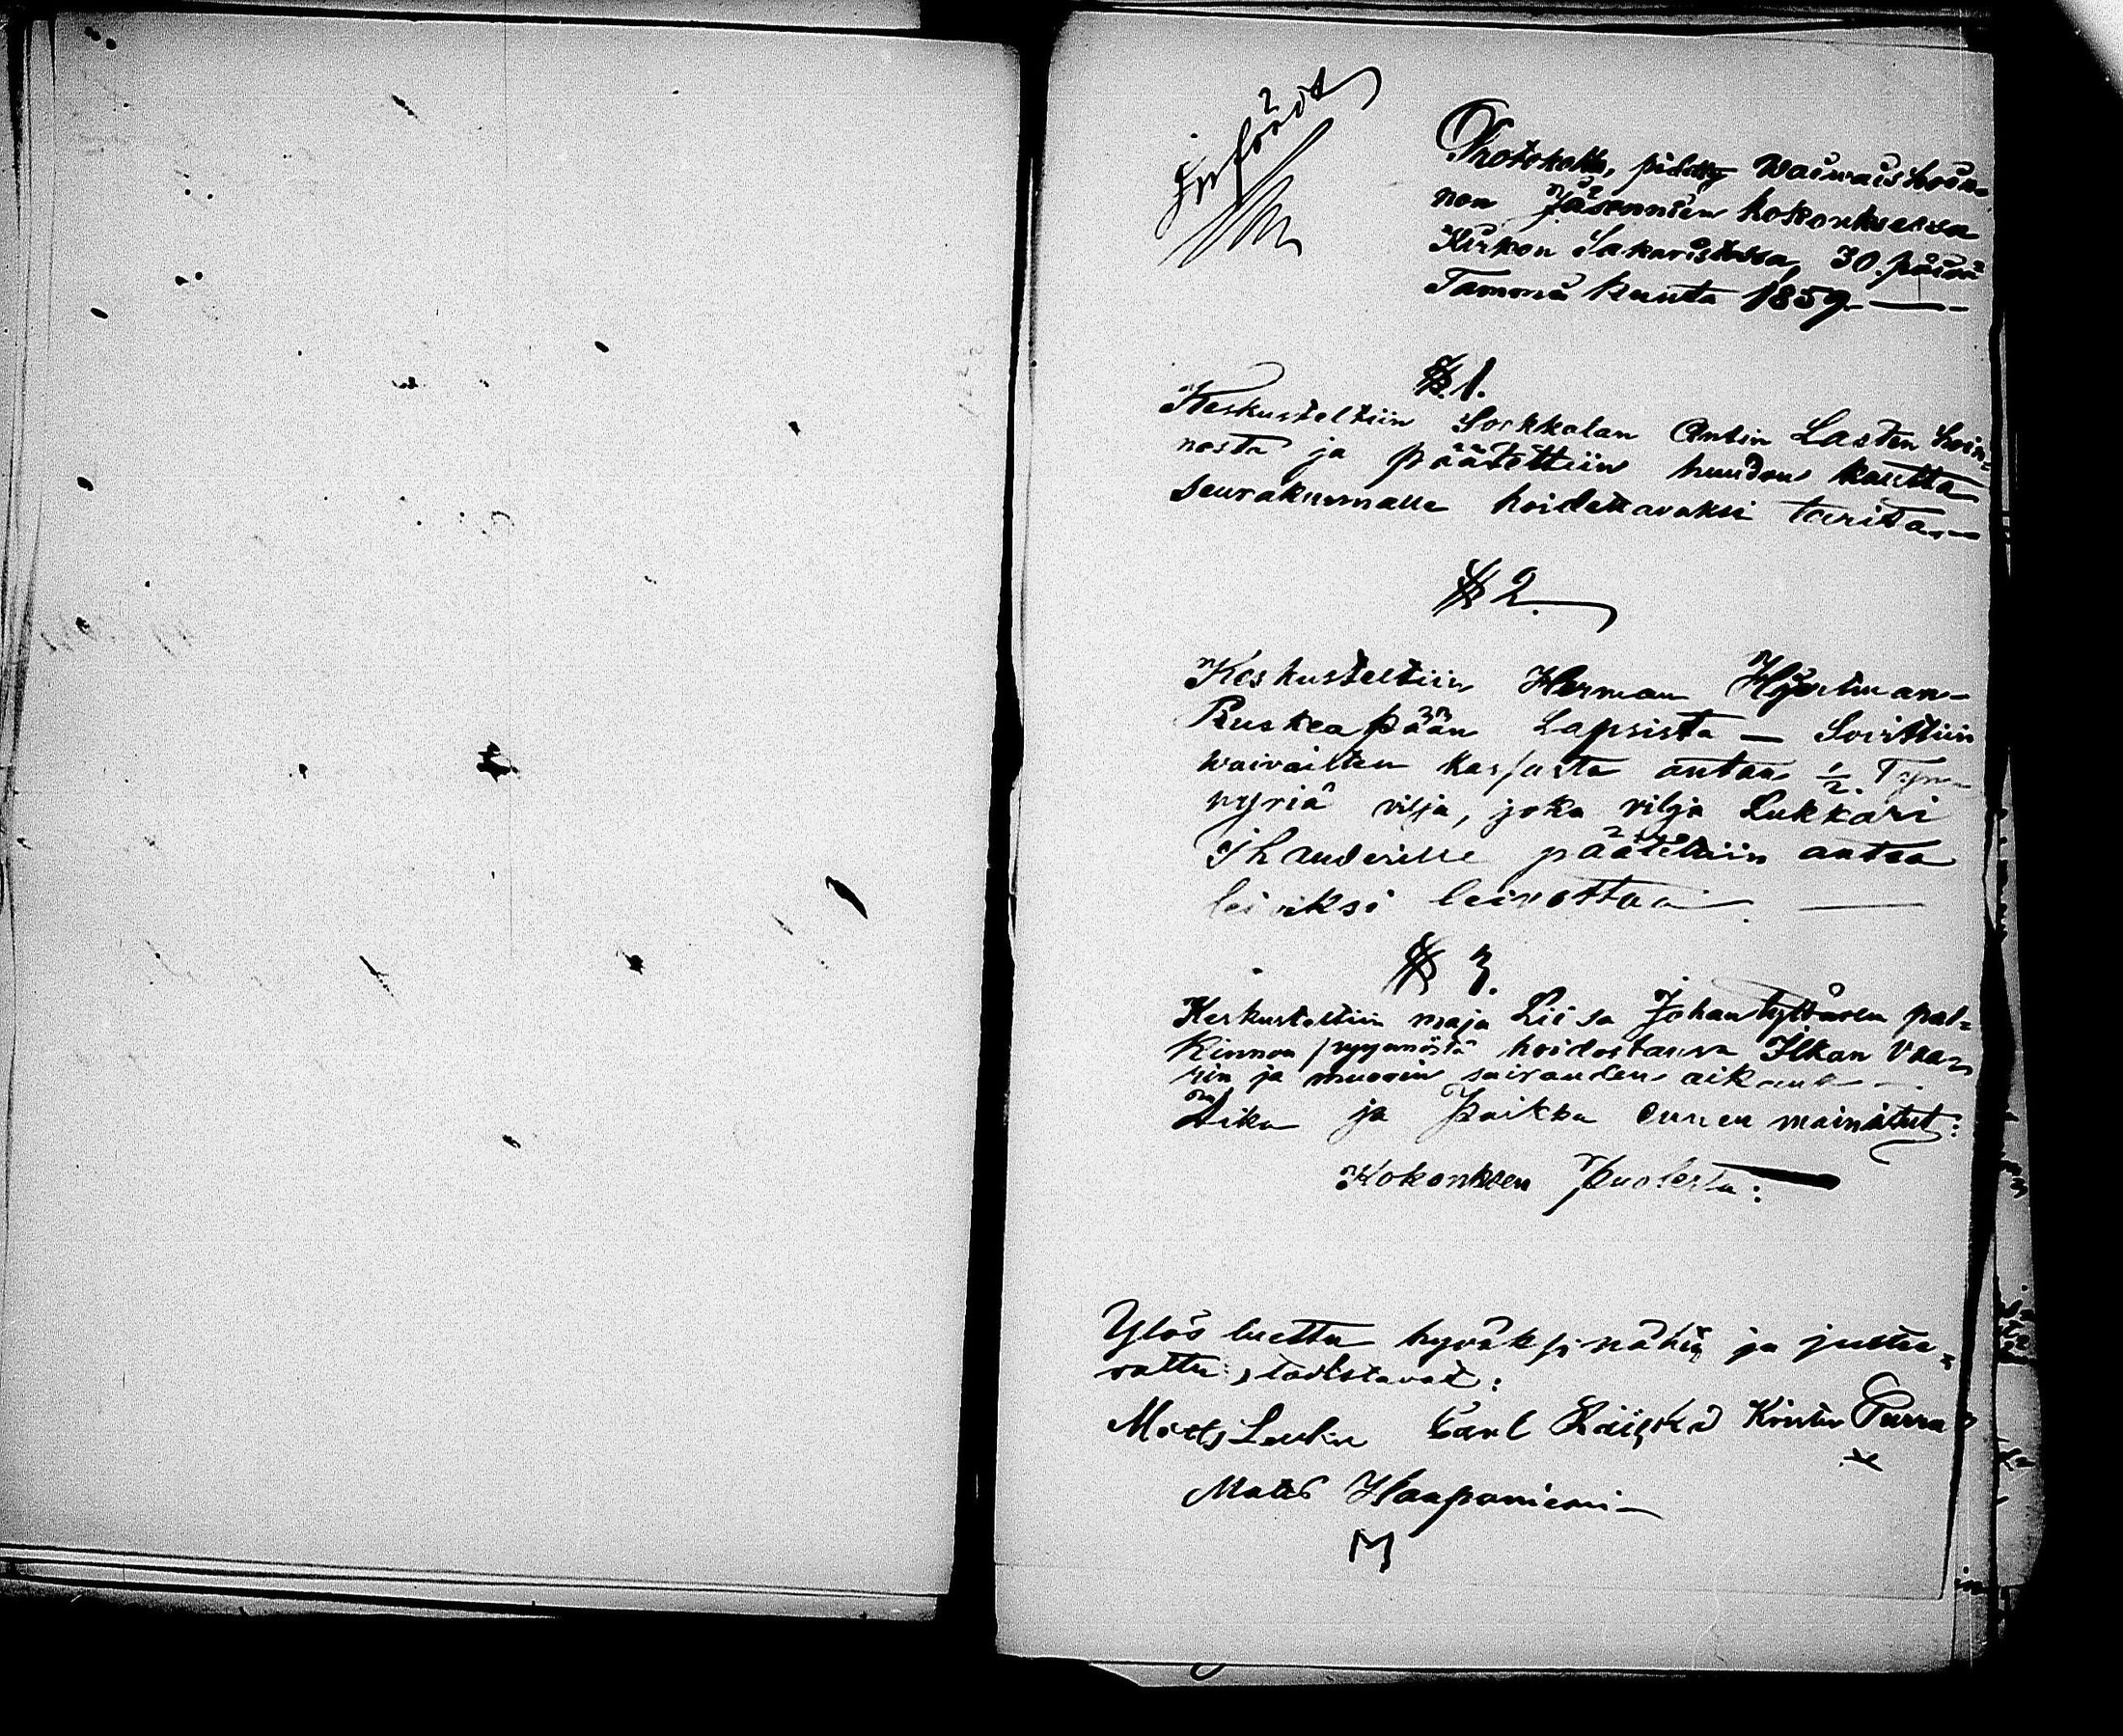 Protokolla, pidetty Waiwaishoin-
non Jäsennien kokouksessa
Kirkon Sakaristossa, 30. päivä
Tammi kuuta 1859.
§ 1.
Keskusteltiin Sorkkolan Antin Lasten hoin-
nosta ja päätettiin huudon kautta
seurakunnalle hoidettavaksi tarita.
§ 2.
Keskusteltiin Herman
Ruskeapään Lapsista — Sovittiin
waivaisten kassasta antaa ½ Tyn-
nyriä vilja, joka vilja Lukkari
päätettiin antaa
leiviksi leivottaa. —
§ 3.
Keskusteltiin maja Liisa Johan tyttären pal-
kinnon pyynnöstä hoidostansa Ilkan Vaa-
rin ja muorin sairauden aikana —
Aika ja paikka ennen mainitut:
Kokouksen Puolesta:
Ylös luettu hyväksi nähty ja justee-
rattu, todistavat:
Matts Carl Räiskä Purra
Matts Haapaniemi